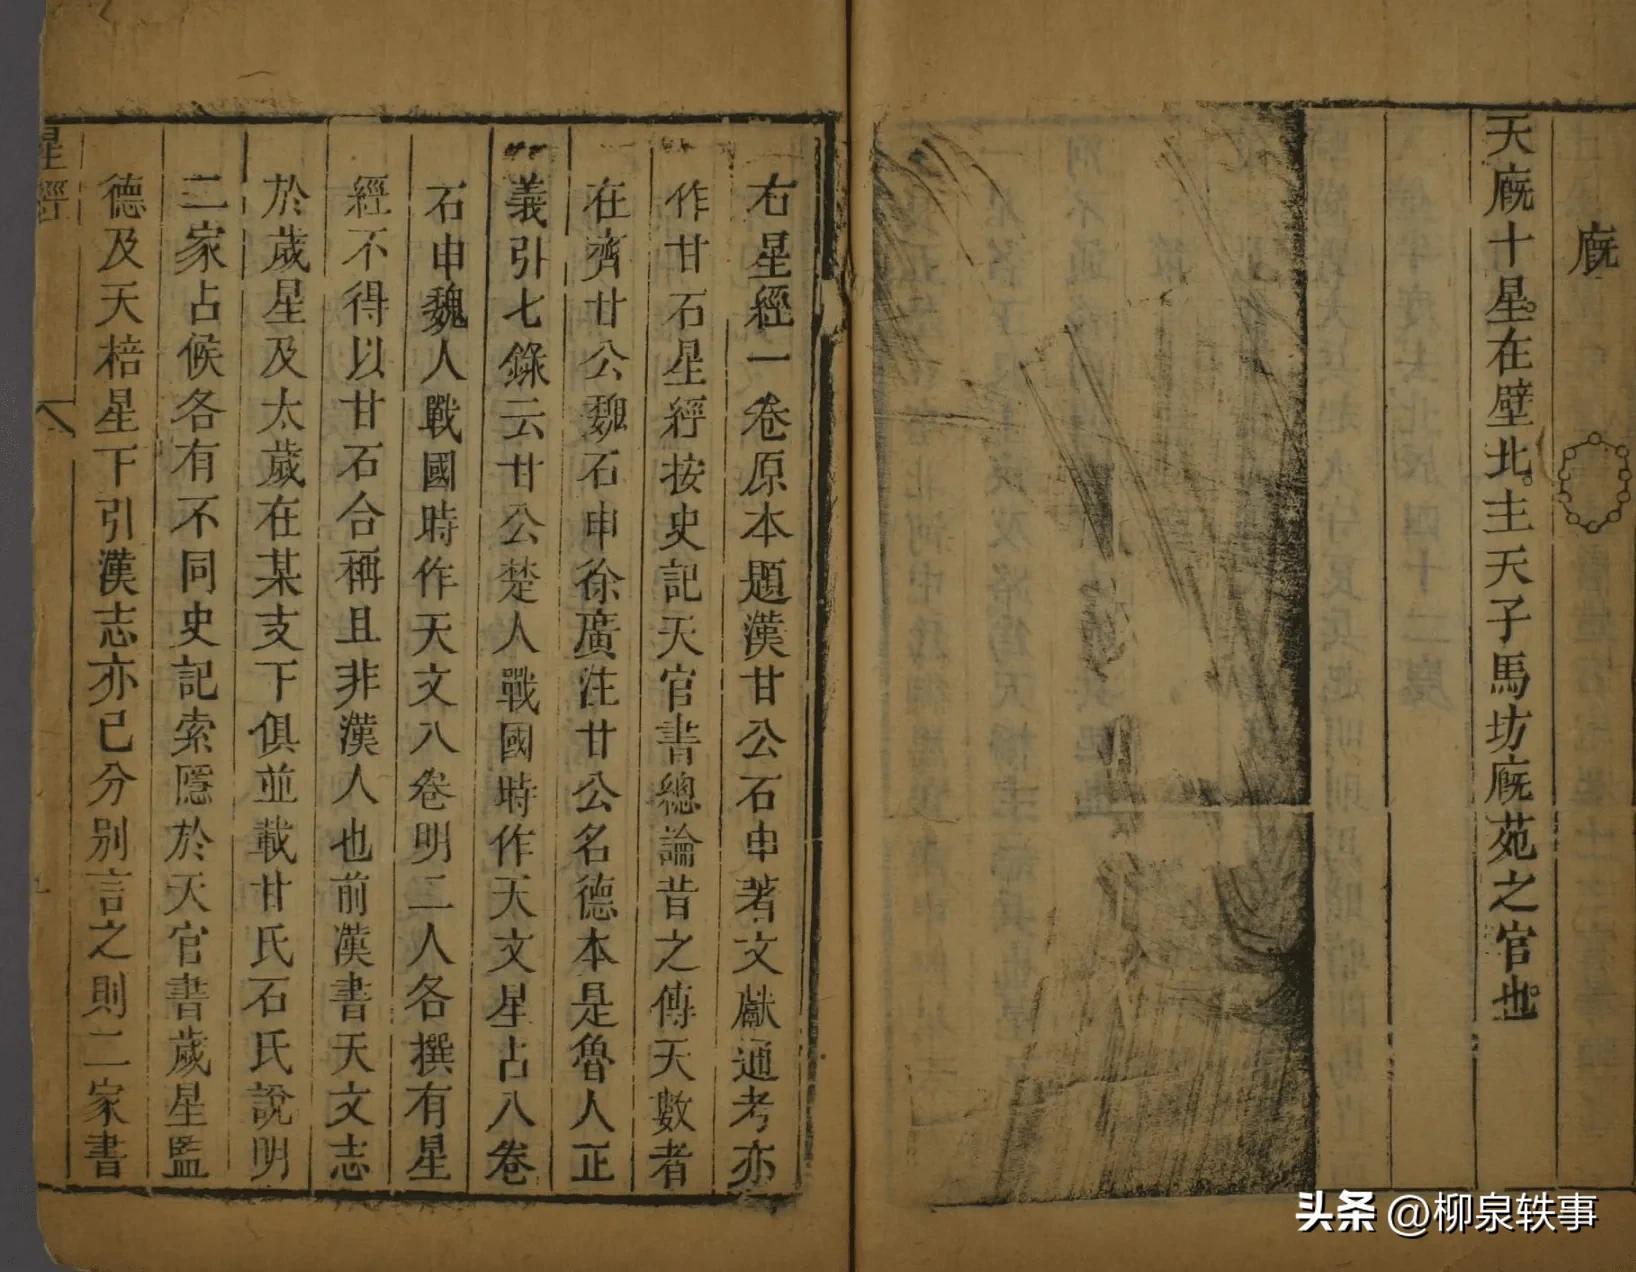 廐
天廐十星在壁北主天子馬坊廐苑之官也
右星經一卷原本題漢甘公石申著文獻通考亦
作甘石星經按史記天官書總論昔之傳天數者
在齊甘公魏石申徐廣注甘公名德本是魯人正
義引七錄云甘公楚人戰國時作天文星占八卷
石申魏人戰國時作天文八卷明二人各撰有星
經不得以甘石合稱且非漢人也前漢書天文志
於歲星及太歲在某支下俱並載甘氏石氏說明
二家占候各有不同史記索隱於天官書歲星監
德及天棓星下引漢志亦已分别言之則二家書
星經
八
头条 @柳泉轶事